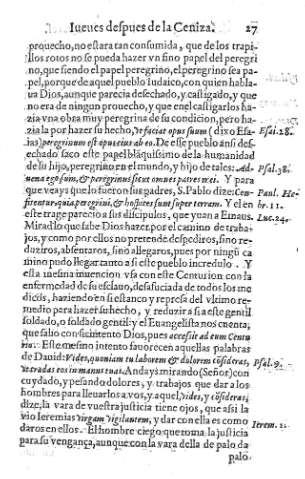 Iueues despues de la Ceniza. 27
prouecho, no estara tan consumida, que de los trapi-
llos rotos no se pueda hazer vn fino papel del peregri
no, que siendo el papel peregrino, el peregrino sea pa-
pel, porque de aquel pueblo Iudaico, con quien habla-
ua Dios, aunque parecia desechado, y castigado, y que
no era de ningun prouecho, y que en el castigarlos ha-
zia vna obra muy peregrina de su condicion, pero ha-
zia la por hazer su hecho, vt faciat opus suum (dixo Esa- Esai. 28.
ias) peregrinum est opus eius ab eo. De ese pueblo ansi des-
echado saco este papel blãquissimo de la humanidad
de su hijo, peregrino en el mundo, y hijo de tales: Ad- Psal. 38.
uena ego sum, & peregrinus sicut omnes patres mei. Y para
que veays que lo fueron sus padres, S. Pablo dize: Con- Paul. He
fitentur quia peregrini, & hospites sunt super terram. Y el en br. 11.
este trage parecio a sus discipulos, que yuan a Emaus. Luc. 24.
Mirad lo que sabe Dios hazer por el camino de traba-
jos, y como por ellos no pretende despediros, sino re-
duziros, absentaros, sino allegaros, pues por ningũ ca
mino pudo llegar tanto a si este pueblo incredulo. Y
esta mesma inuencion vsa con este Centurion con la
enfermedad de su esclauo, desafuciada de todos los me
dicos, haziendo en si estanco y represa del vltimo re-
medio para hazer su hecho, y reduzir a si a este gentil
soldado, o soldado gentil: y el Euangelista nos cuenta,
que salio con su intento Dios, pues accessit ad eum Centu
rio. Este mesmo intento fauorecen aquellas palabras
de Dauid: Vides, quoniam tu laborem & dolorem cõsideras, Psal. 9.
vt tradas eos in manus tuas. Andays mirando (Señor) con
cuydado, y pesando dolores, y trabajos que dar a los
hombres para lleuarlos a vos, y aquel, vides, y cõsideras,
dize, la vara de vuestra justicia tiene ojos, que assi la
vio Ieremias virgam vigilantem, y dar con ella es como Ierem. 1.
daros en ellos. El hombre ciego que toma la justicia
para su vengança, aunque con la vara della de palo da
palo